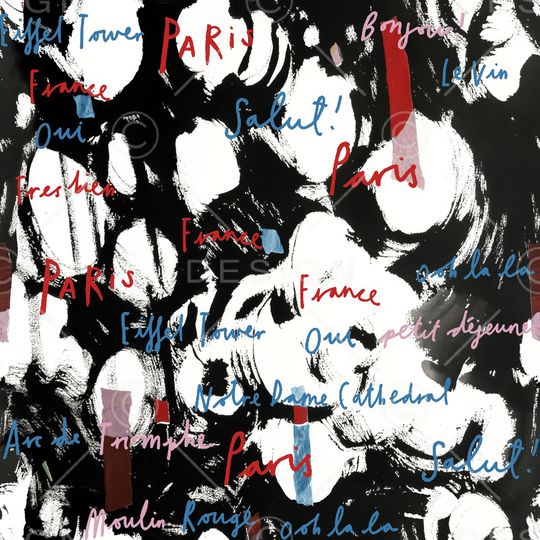 Eiffel Tower PARIS Bonjour!
Le Vin
France
Salut!
Oui
Paris
Tres bien
France
ooh la la
PARIS
France
Eiffel Tower Oui petit déjeune
Notre Dame Cathedral
Arc de Triomphe
Paris
Salut!
Moulin Rouge ooh la la
DESIGN